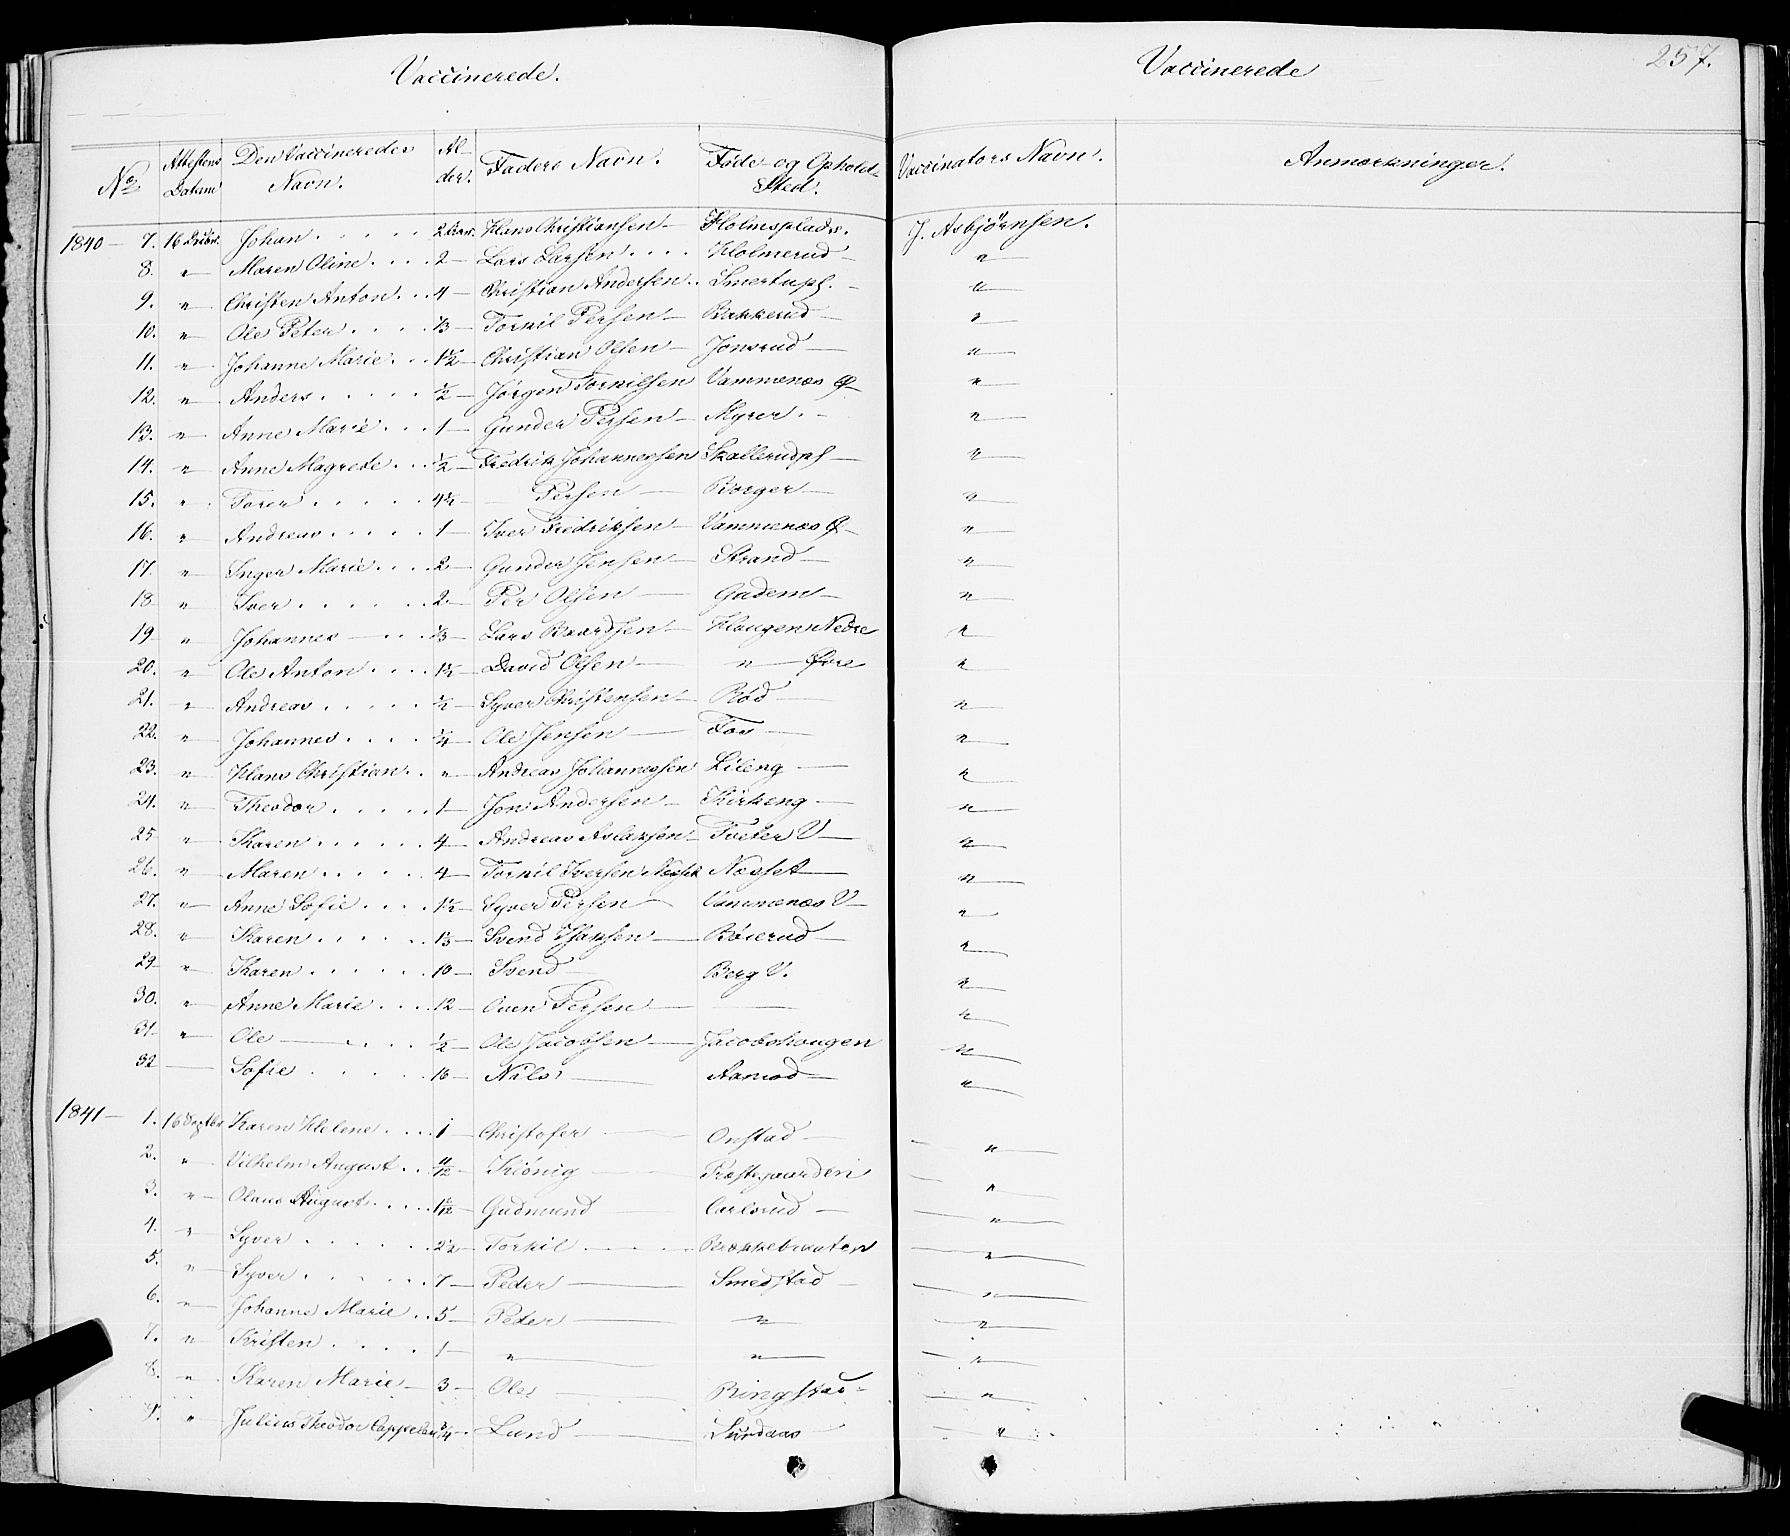 Vaccinerede.
Vaccinerede
257.
No Attestens Datum Den Vaccineredes Navn. Al-der. Faders Navn. Føde og Ophold-Sted. Vaccinators Navn. Anmærkninger.
1840 — 7. 16 Johan . . . . . 2 Hans Christiansen — Holmsplads. J. Asbjørnsen.
8. " Maren Oline . . . . 2 — Lars Larsen . . . . Holmerud — "
9. " Christen Anton . . . 4 — Christian Andersen . . Smertupl. — "
10. " Ole Peter . . . . 1/3 — Torkil Persen — Bakkerud — "
11. " Johanne Marie . . 1 1/2 — Christian Olsen — Jonsrud — "
12. " Anders . . . . . 1/2 — Jørgen Torkilsen Vammenæs Ø — "
13. " Anne Marie . . . 1 — Gunder Persen — Myrer . — "
14. " Anne Magrede . . . 1/2 — Fredrik Johannessen Skallerudpl — "
15. " Torer . . . . . 4 1/2 — Persen — Borger — "
16. " Andreas . . . . . 1 — Iver Fredriksen — Vammenæs Ø — "
17. " Inger Marie . . . . 2 — Gunder Jensen — Strand — "
18 " Iver . . . . . . 2 — Per Olsen — Gudem — "
19 " Johannes — . . . 1/3 — Lars Baardsen — Haugen Nedre "
20. " Ole Anton . . . . 1 1/2 — David Olsen — " — Øvre "
21. " Andreas . . . . . 1/2 — Syver Christensen — Rød — "
22. " Johannes . . . . 1/4 — Ole Jensen — Fos — "
23. " Hans Christian . . " — Andreas Johannessen Lileng — "
24. " Theodor . . . . . 1 — Jon Andersen — Kirkeng — "
25 " Karen . . . . . . 4 — Andreas Aslaksen — Tveter V — "
26. " Maren . . . . . . 4 — Torkil Iversen Næsset Næsset — "
27. " Anne Sofie . . . . 1 1/2 — Syver Persen — Vammenæs V — "
28. " Karen . . . . . 1/3 — Svend Hansen — Bøierud — "
29 " Karen . . . . . . 10 — Svend — Berg V. "
30. " Anne Marie . . . 12 — Oven Persen — — "
31 " Ole — . . . 1/2 — Ole Jacobsen — Jacobshougen "
32 — Sofie . . . . . 16 — Nils — Aamod — "
1841 — 1. 16 Septbr Karen Helene . . . . 1 — Christofer — Onstad — "
2. " Vilhelm August . . 11/12 — Kiönig — Præstegaarden "
3. " Olaus August . . . . Gudmund — Carlsrud — "
4. " Syver . . . . . . 2 1/2 — Torkil — Brækkebraaten "
5. " Syver . . . . . . 7 — Peder — Smedstad — "
6. " Johanne Marie . . 5 — Peder — " "
7. " Kristen . . . . . 1 — " " "
8. " Karen Marie — 3 — Ole — Ringstad — "
9. " Julius Theodor Cappelen 3/4 — Lund — Sundaas "